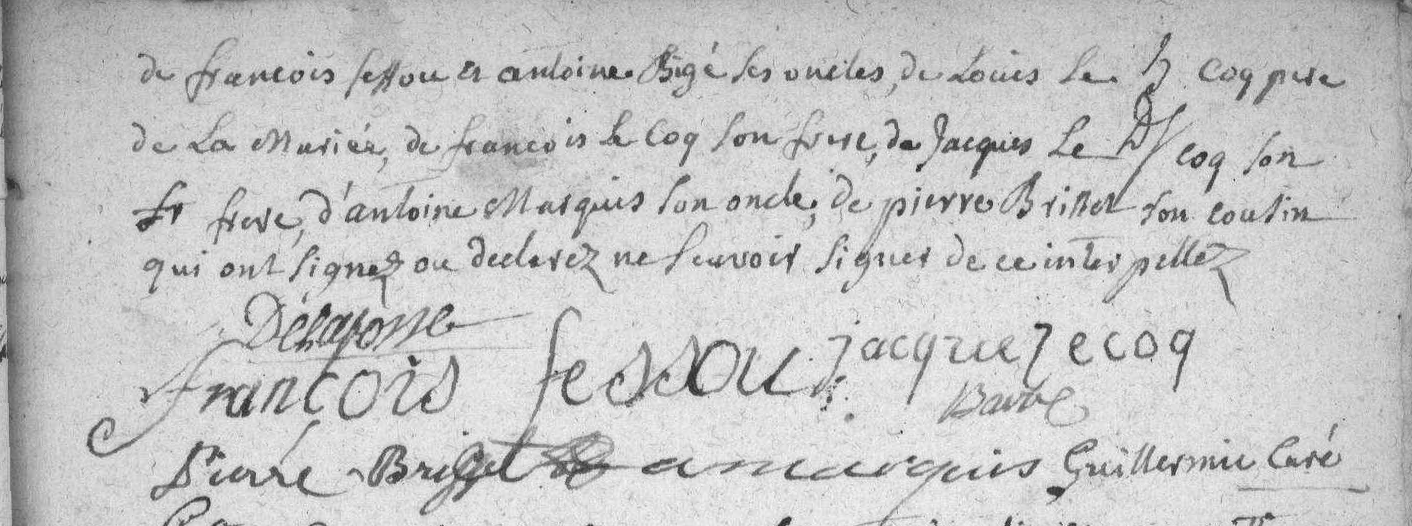 de francois fessou et antoine Bigé ses oncles, de Louis Le coq pere
de La Mariée, de francois le Coq son frere, de Jacques Le coq son
frere, d'antoine Marquis son oncle, de pierre Brisset son cousin
qui ont signez ou declarez ne scavoir signer de ce interpellez
Delafosse
francois fessou jacque lecoq
Barré
Pierre Brisset amarquis Guillermin Curé